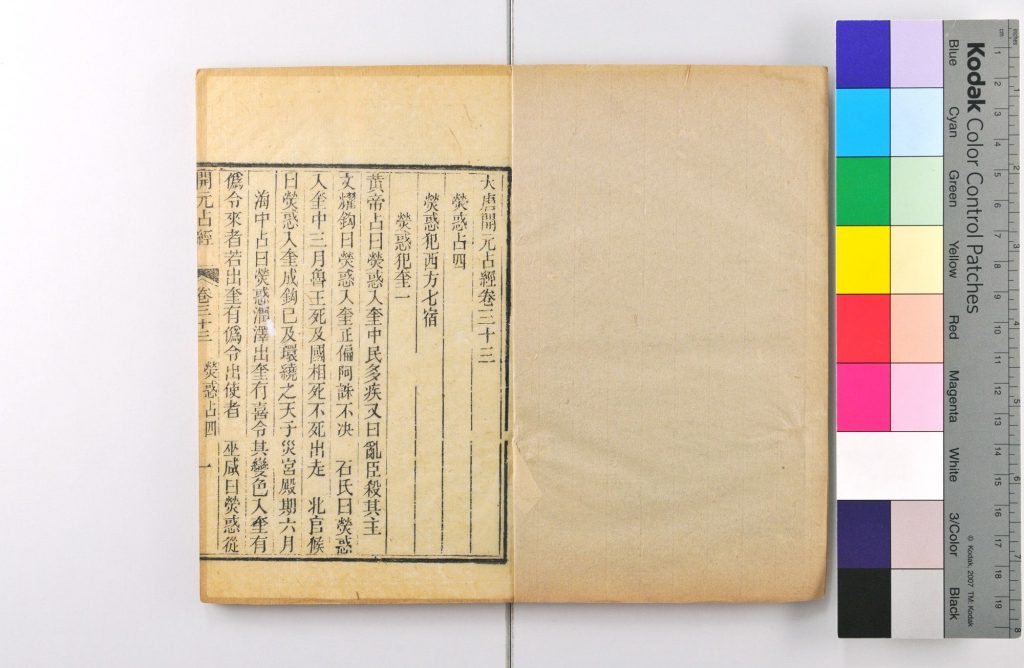 大唐開元占經卷三十三
熒惑占四
熒惑犯西方七宿
熒惑犯奎一
黃帝占曰熒惑入奎中民多疾又曰亂臣殺其主
文耀鈎曰熒惑入奎正偏阿誅不决 石氏曰熒惑
入奎中三月魯王死及國相死不死出走 北官候
曰熒惑入奎成鈎巳及環繞之天子災宮殿期六月
海中占曰熒惑潤澤出奎有喜令其變色入奎有
僞令來者若出奎有僞令出使者 巫咸曰熒惑從
開元占經 卷三十三 熒惑占四 一
Kodak Color Control Patches
Blue
Cyan
Green
Yellow
Red
Magenta
White
3/Color
Black
© Kodak, 2007 TM: Kodak
inches
cm
1 2 3 4 5 6 7 8 9 10 11 12 13 14 15 16 17 18 19
1 2 3 4 5 6 7 8